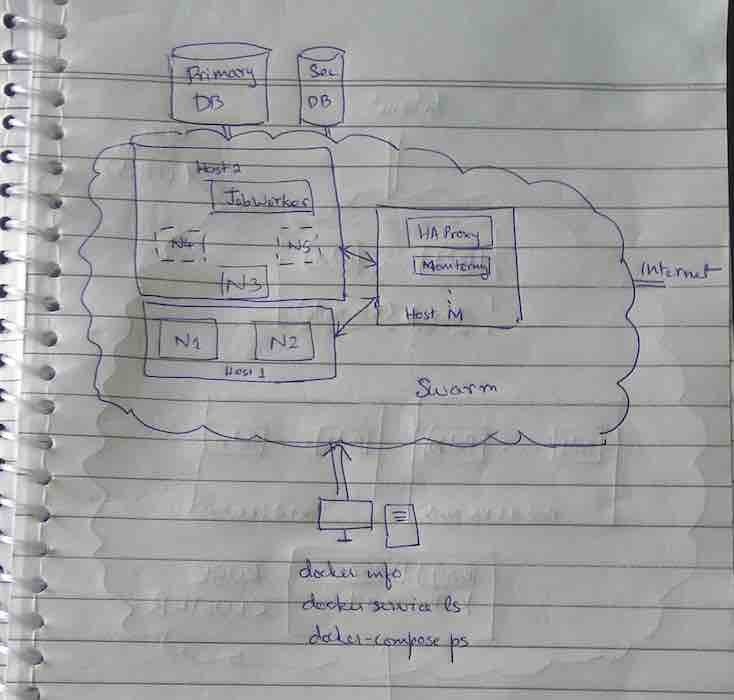 Primary
DB
Sec
DB
Host 2
JobWorker
N4
N5
N3
HA Proxy
Monitoring
Host M
N1
N2
Host 1
Internet
Swarm
docker info
docker service ls
docker-compose ps